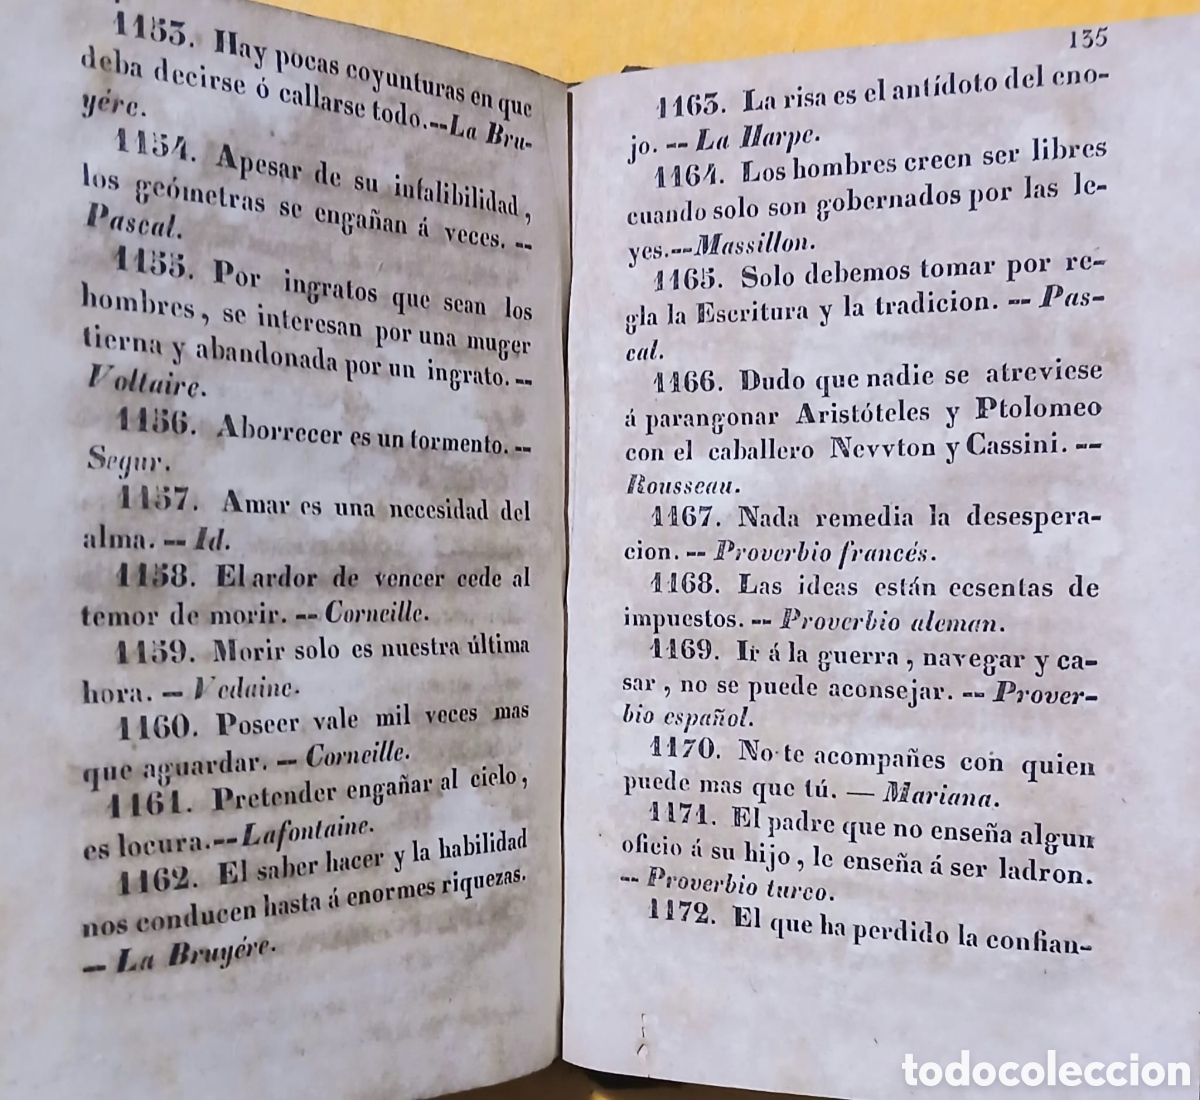 1153. Hay pocas coyunturas en que
deba decirse ó callarse todo.--La Bru-
yére.
1154. Apesar de su infalibilidad,
los geómetras se engañan á veces. --
Pascal.
1155. Por ingratos que sean los
hombres, se interesan por una muger
tierna y abandonada por un ingrato.--
Voltaire.
1156. Aborrecer es un tormento.--
Segur.
1157. Amar es una necesidad del
alma. -- Id.
1158. El ardor de vencer cede al
temor de morir. -- Corneille.
1159. Morir solo es nuestra última
hora. -- Vedaine.
1160. Poseer vale mil veces mas
que aguardar. -- Corneille.
1161. Pretender engañar al cielo,
es locura.--Lafontaine.
1162. El saber hacer y la habilidad
nos conducen hasta á enormes riquezas.
-- La Bruyére.
135
1163. La risa es el antídoto del eno-
jo. -- La Harpe.
1164. Los hombres creen ser libres
cuando solo son gobernados por las le-
yes.--Massillon.
1165. Solo debemos tomar por re-
gla la Escritura y la tradicion. -- Pas-
cal.
1166. Dudo que nadie se atreviese
á parangonar Aristóteles y Ptolomeo
con el caballero Nevvton y Cassini. --
Rousseau.
1167. Nada remedia la desespera-
cion. -- Proverbio francés.
1168. Las ideas están ecsentas de
impuestos. -- Proverbio aleman.
1169. Ir á la guerra, navegar y ca-
sar, no se puede aconsejar. -- Prover-
bio español.
1170. No te acompañes con quien
puede mas que tú. — Mariana.
1171. El padre que no enseña algun
oficio á su hijo, le enseña á ser ladron.
-- Proverbio turco.
1172. El que ha perdido la confian-
todocoleccion